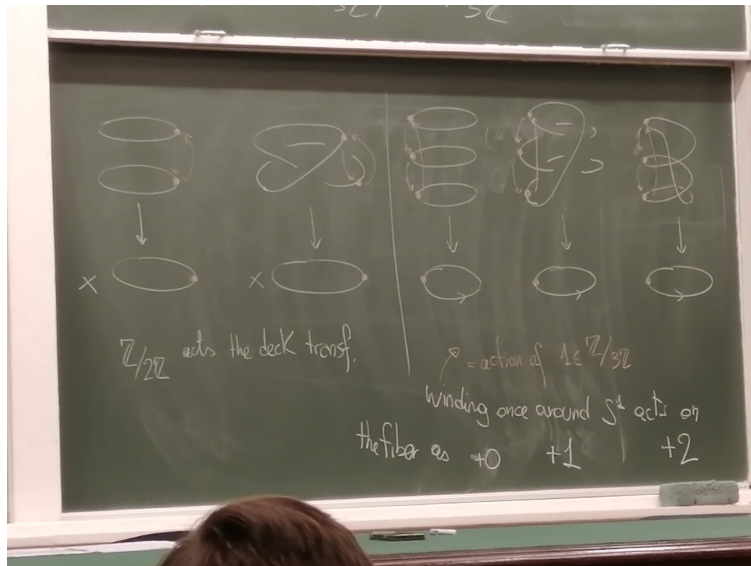 X
X
Z/2Z acts the deck transf.
= action of 1 ∈ Z/3Z
Winding once around S¹ acts on
the fiber as +0 +1 +2